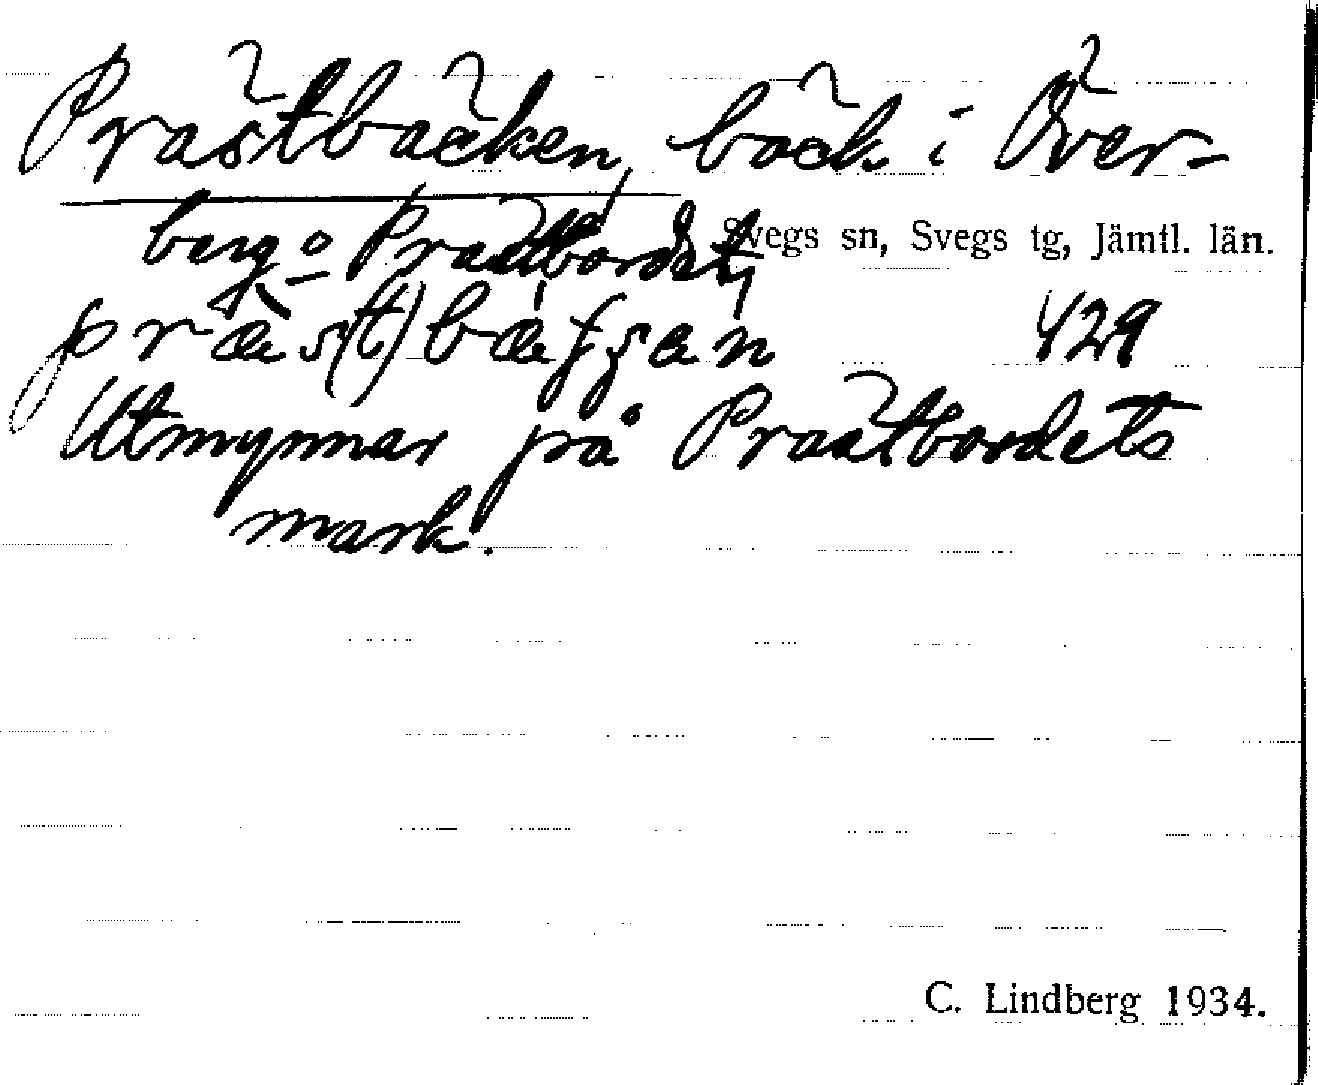 Prästbäcken, bäck i Över-
berg o Prästbordet,
Svegs sn, Svegs tg, Jämtl. län.
præ̀s(t)bæ̀ʃʃan 429
Utmynnar på Prästbordets
mark.
C. Lindberg 1934.